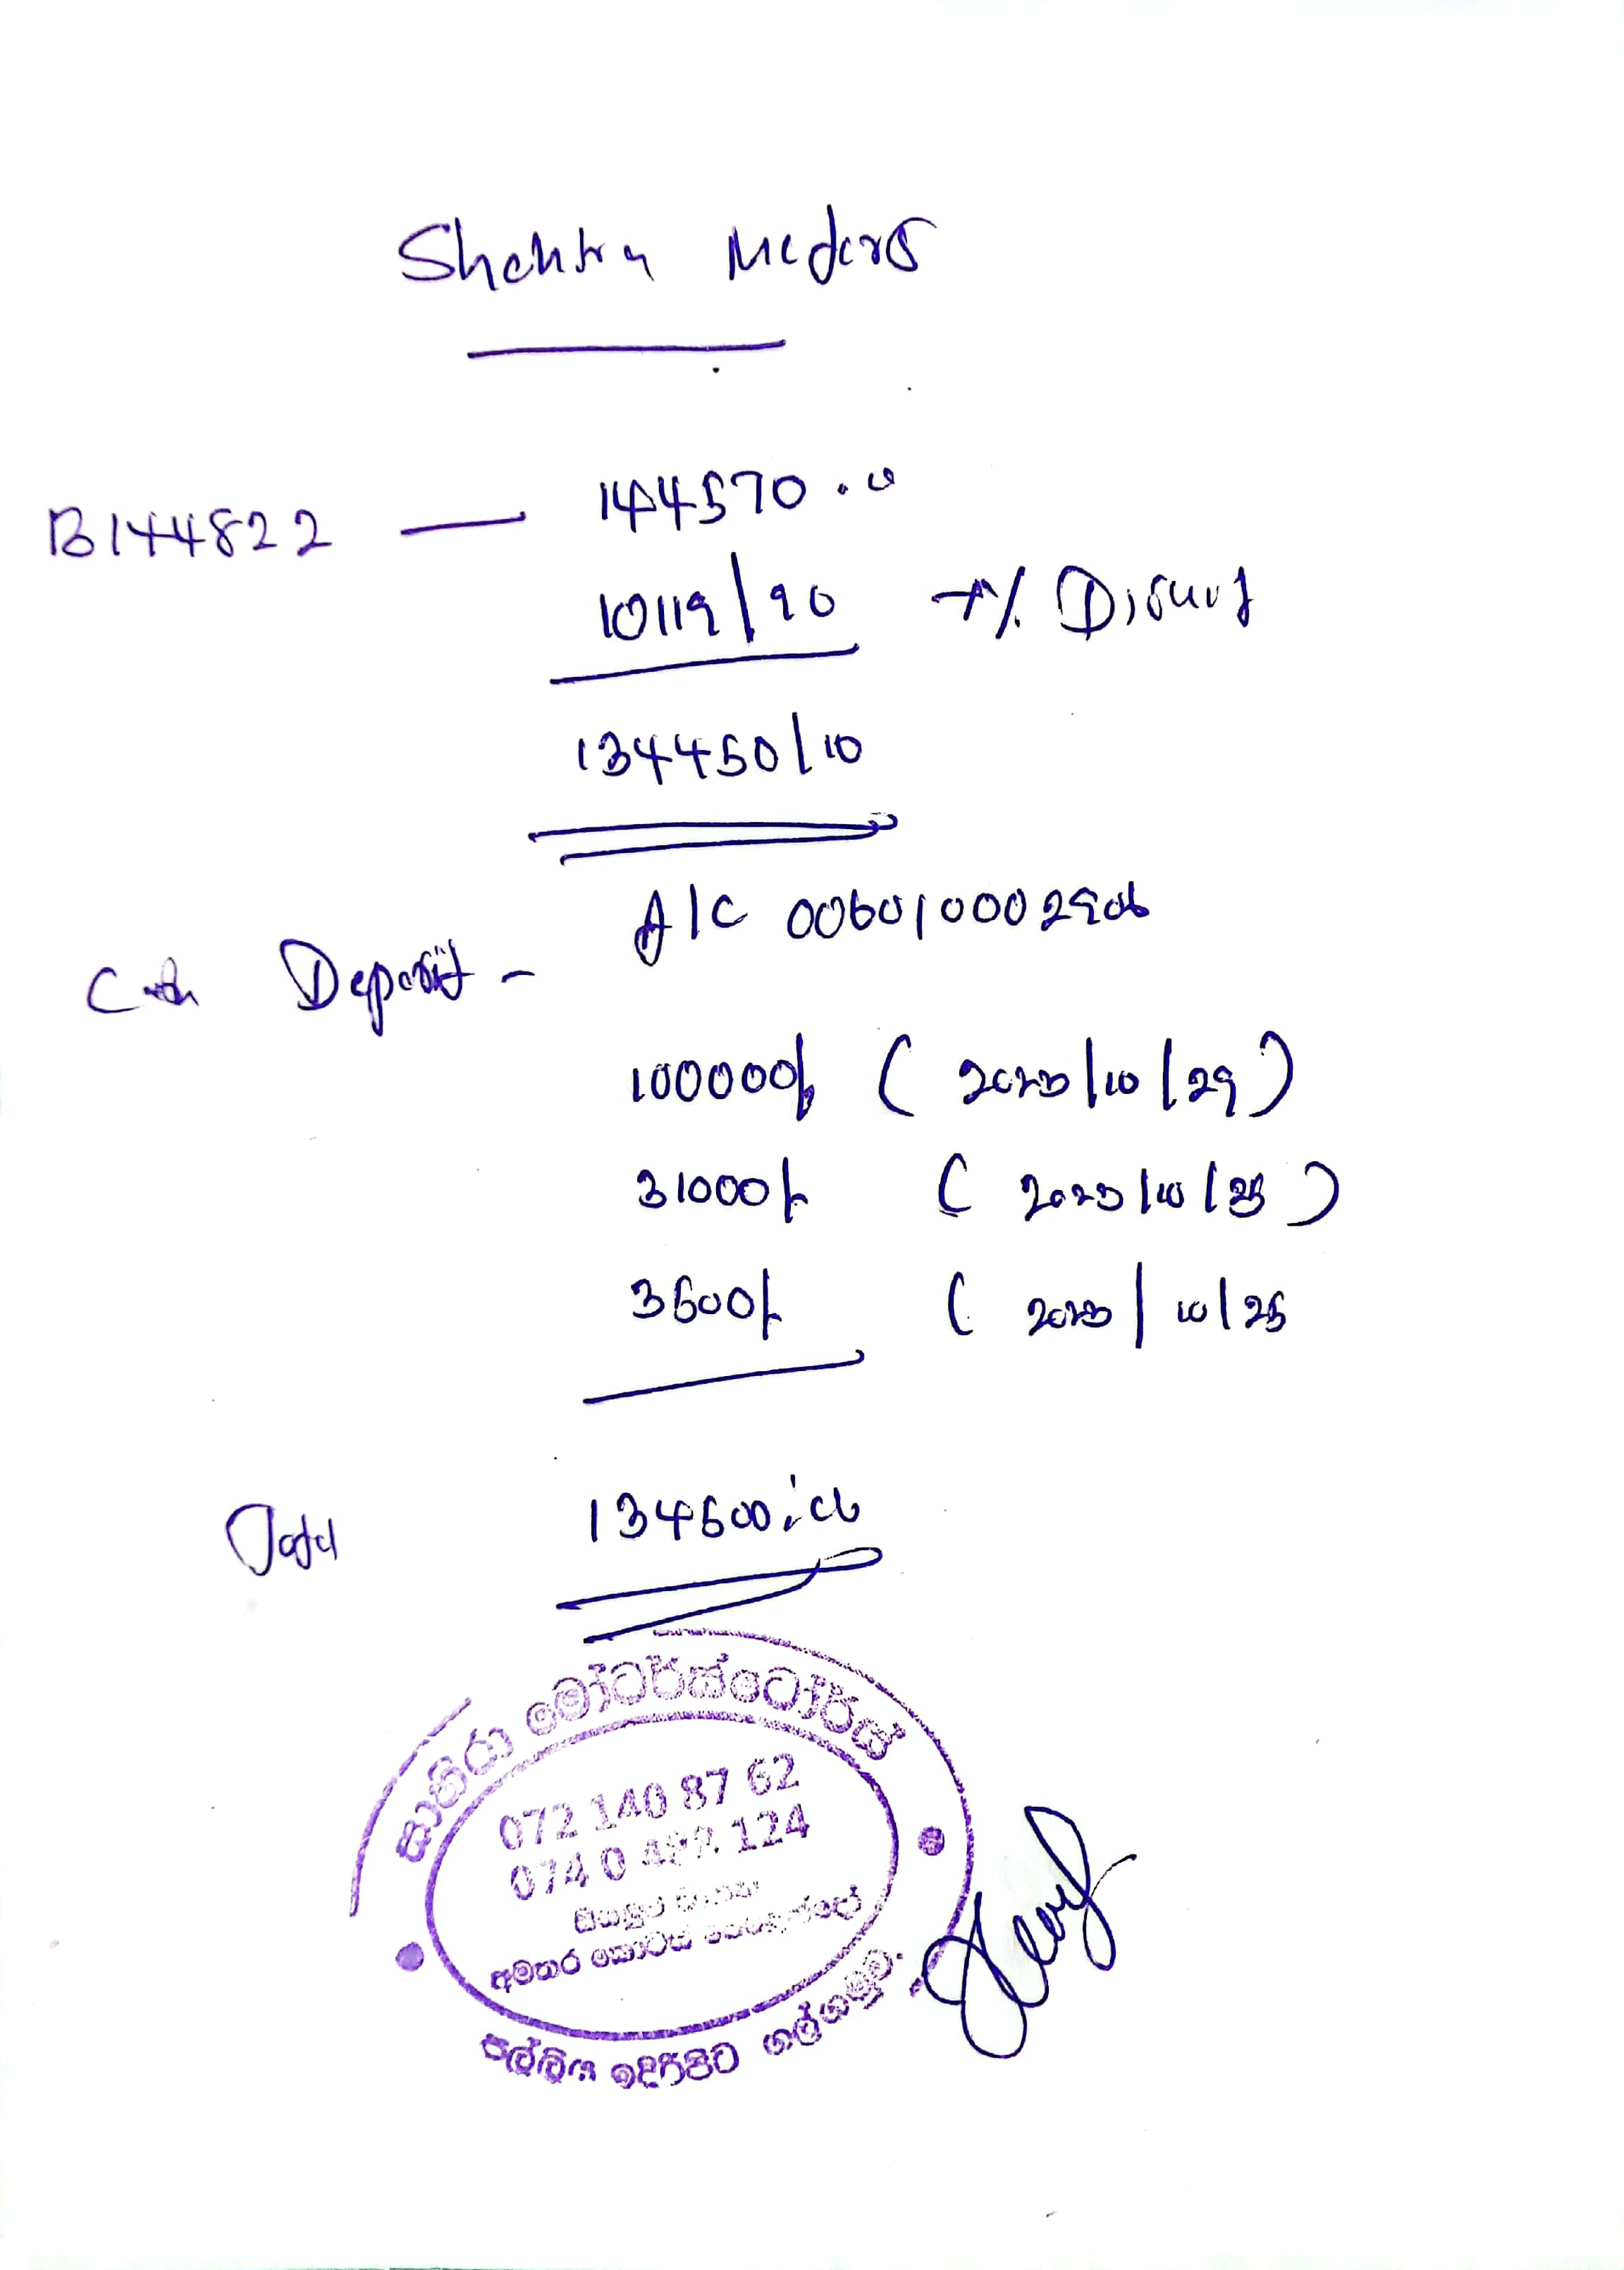 B144822 — 144570.00
10119/90 7% Discount
134450/10
A/C 006010002906
Cash Deposit -
100000/- (2023/10/29)
31000/- (2023/10/25)
3500/- (2023/10/25
Total 134500.00
මෝටර්ස්ටෝර්ස්
072 140 87 62
074 0 124
අමතර කොටස්
පල්ලිය ඉදිරිපිට ගල්ගමුව.